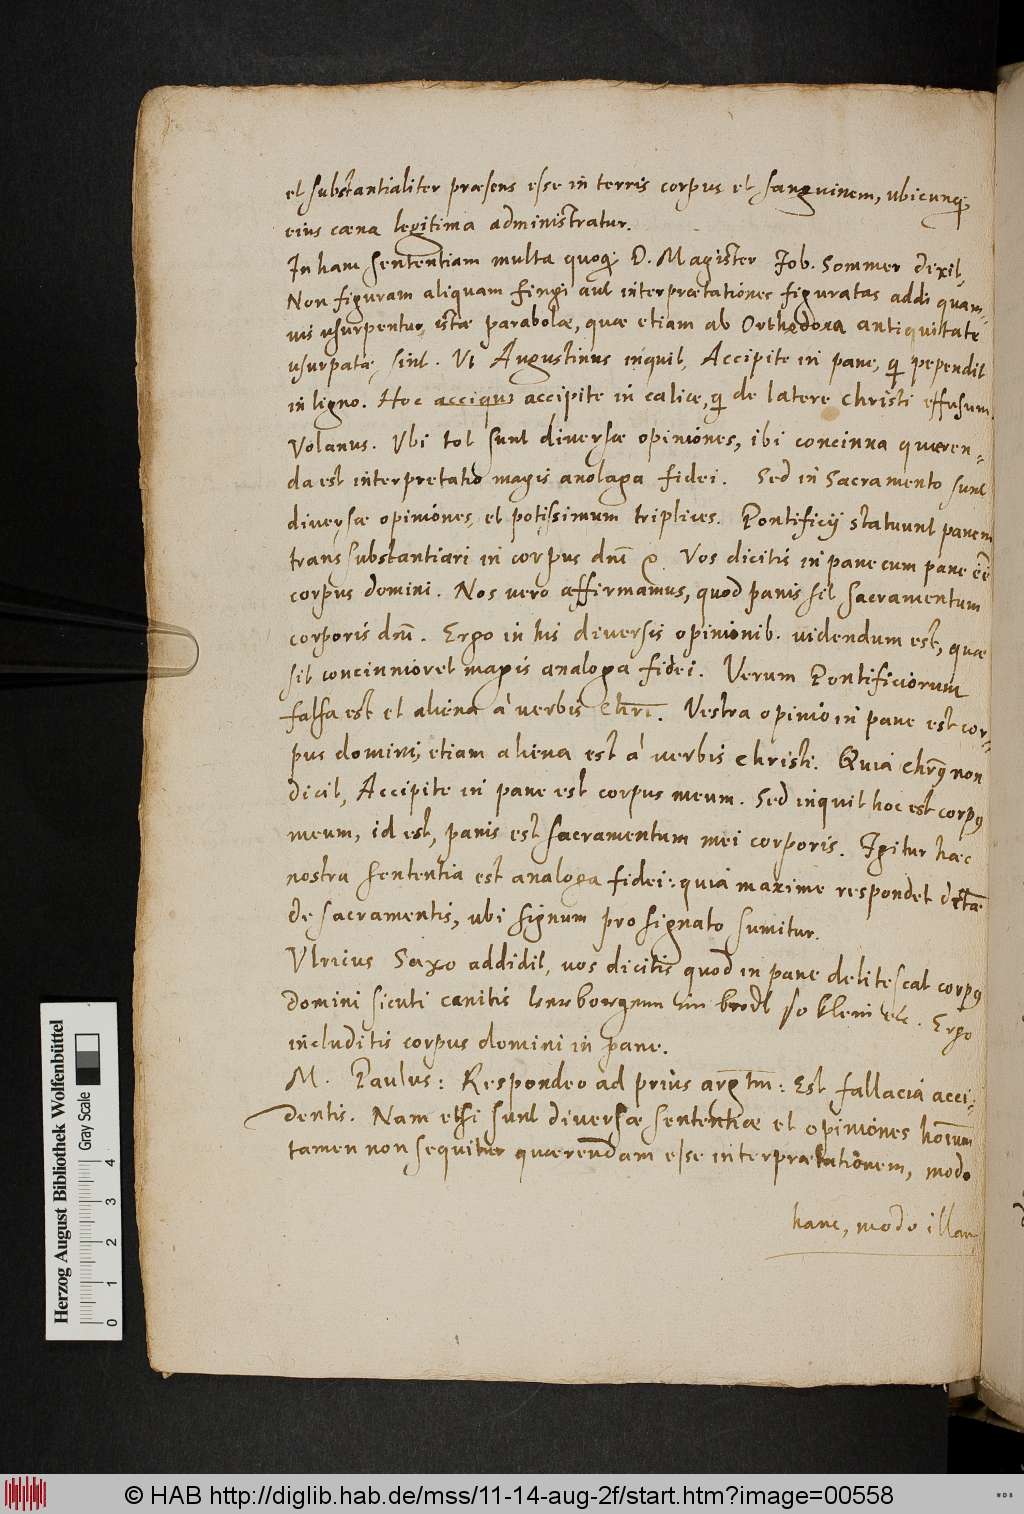 et substantialiter præsens esse in terris corpus et sanguinem, ubicunq;
eius cæna legitima administratur.
In hanc sententiam multa quoq; D. Magister Joh. Sommer dixit,
Non figuram aliquam fingi aut interprætationes figuratas addi quam-
uis usurpentur istæ parabolæ, quæ etiam ab Orthodoxa antiquitate
usurpatæ sint. Vt Augustinus inquit, Accipite in pane, q; pependit
in ligno. Hoc accipite in calice, q; de latere Christi effusum.
Volanus. Vbi tot sunt diversæ opiniones, ibi concinna quæren-
da est interpretatio magis anologa fidei. Sed in Sacramento sunt
diversæ opiniones, et potissimum triplices. Pontificij statuunt panem
transsubstantiari in corpus dnī. Vos dicitis in pane cum pane eē
corpus domini. Nos vero affirmamus, quod panis sit sacramentum
corporis dnī. Ergo in his diversis opinionib. videndum est, quæ
sit concinnior et magis analoga fidei. Verum Pontificiorum
falsa est et aliena à verbis Chrī. Vestra opinio in pane est cor-
pus domini, etiam aliena est à verbis Christi. Quia Chrg non
dicit, Accipite in pane est corpus meum. Sed inquit hoc est corpg
meum, id est, panis est sacramentum mei corporis. Igitur hæc
nostra sententia est analoga fidei: quia maxime respondet
de sacramentis, ubi signum pro signato sumitur.
Vlricus Saxo addidit, vos dicitis quod in pane delitescat corpg
domini sicuti canitis brodt so klein etc. Ergo
includitis corpus domini in pane.
M. Paulus: Respondeo ad prius argtm: Est fallacia acci-
dentis. Nam etsi sunt diversæ sententiæ et opiniones hoīum
tamen non sequitur quærendam esse interprætationem, modo
hanc, modo illam
Herzog August Bibliothek Wolfenbüttel
Gray Scale
0 1 2 3 4
© HAB http://diglib.hab.de/mss/11-14-aug-2f/start.htm?image=00558